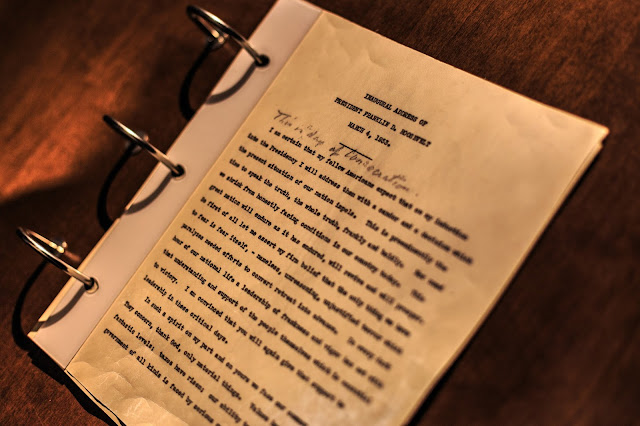 INAUGURAL ADDRESS OF
PRESIDENT FRANKLIN D. ROOSEVELT
MARCH 4, 1933.
This is day of
I am certain that my fellow Americans expect that on my induction
into the Presidency I will address them with a candor and a decision which
the present situation of our nation impels. This is preeminently the
time to speak the truth, the whole truth, frankly and boldly. Nor need
we shrink from honestly facing conditions in our country today. This
great nation will endure as it has endured, will revive and will prosper.
So first of all let me assert my firm belief that the only thing we have
to fear is fear itself, - nameless, unreasoning, unjustified terror which
paralyzes needed efforts to convert retreat into advance. In every dark
hour of our national life a leadership of frankness and vigor has met with
that understanding and support of the people themselves which is essential
to victory. I am convinced that you will again give that support to
leadership in these critical days.
In such a spirit on my part and on yours we face our common
They concern, thank God, only material things. Values
fantastic levels; taxes have risen; our ability
government of all kinds is faced by serious